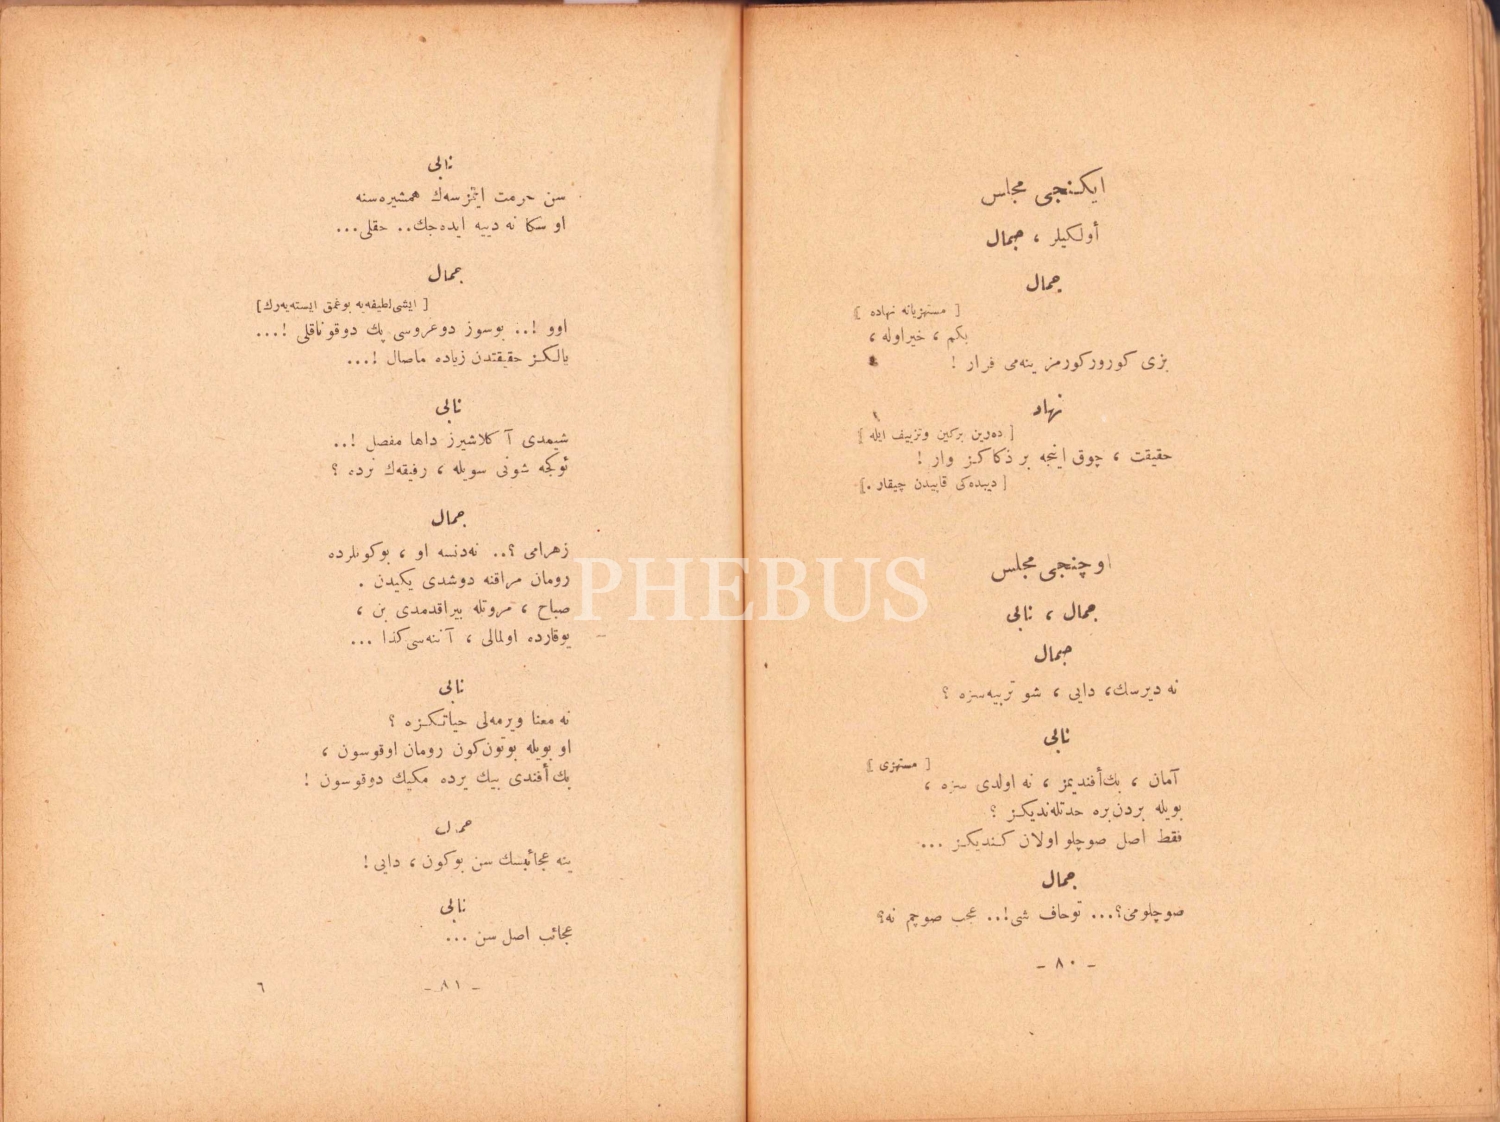 ایكنجی مجلس
أولكیلر ، جمال
جمال
[ مستهزیانه نهاده ]
بكم ، خیر اوله ،
بزی كورور كورمز ینه‌می فرار !
نهاد
[ ده‌رین بركین وتزییف ایله ]
حقیقت ، چوق اینجه بر ذكاكز وار !
[ دیبده‌كی قاپیدن چیقار . ]
اوچنجی مجلس
جمال ، نالی
جمال
نه دیرسك، دایی ، شو تربیه‌سزه ؟
نالی
[ مستهزی ]
آمان ، بك‌أفندیمز ، نه اولدی سزه ،
بویله بردن‌بره حدتله‌ندیكز ؟
فقط اصل صوچلو اولان كندیكز ...
جمال
صوچلومی؟... توحاف شی!.. عجب صوچم نه؟
- ٨٠ -
نالی
سن حرمت ایتمزسه‌ك همشیره‌سنه
او سكا نه دییه ایده‌جك.. حقلی...
جمال
[ ایشی لطیفه‌یه بوغمق ایسته‌یه‌رك ]
اوو !.. بوسوز دوغروسی پك دوقوناقلی !...
یالكز حقیقتدن زیاده ماصال !...
نالی
شیمدی آكلاشیرز داها مفصل !..
ئوكجه شونی سویله ، رفیقه‌ك نرده ؟
جمال
زهرامی ؟.. نه‌دنسه او ، بوكونلرده
رومان مراقنه دوشدی یكیدن .
صباح ، مروتله بیراقدمدی بن ،
یوقارده اولمالی ، آننه‌سی كذا ...
نالی
نه معنا ویرمه‌لی حیاتكزه ؟
او بویله بوتون‌كون رومان اوقوسون ،
بك‌أفندی بیك یرده مكیك دوقوسون !
جمال
ینه عجائبسك سن بوكون ، دایی !
نالی
عجائب اصل سن ...
- ٨١ -
٦
PHEBUS